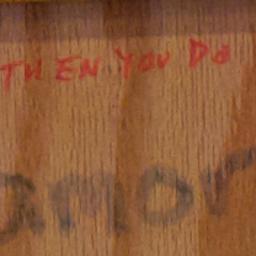 THEN YOU DO
amor